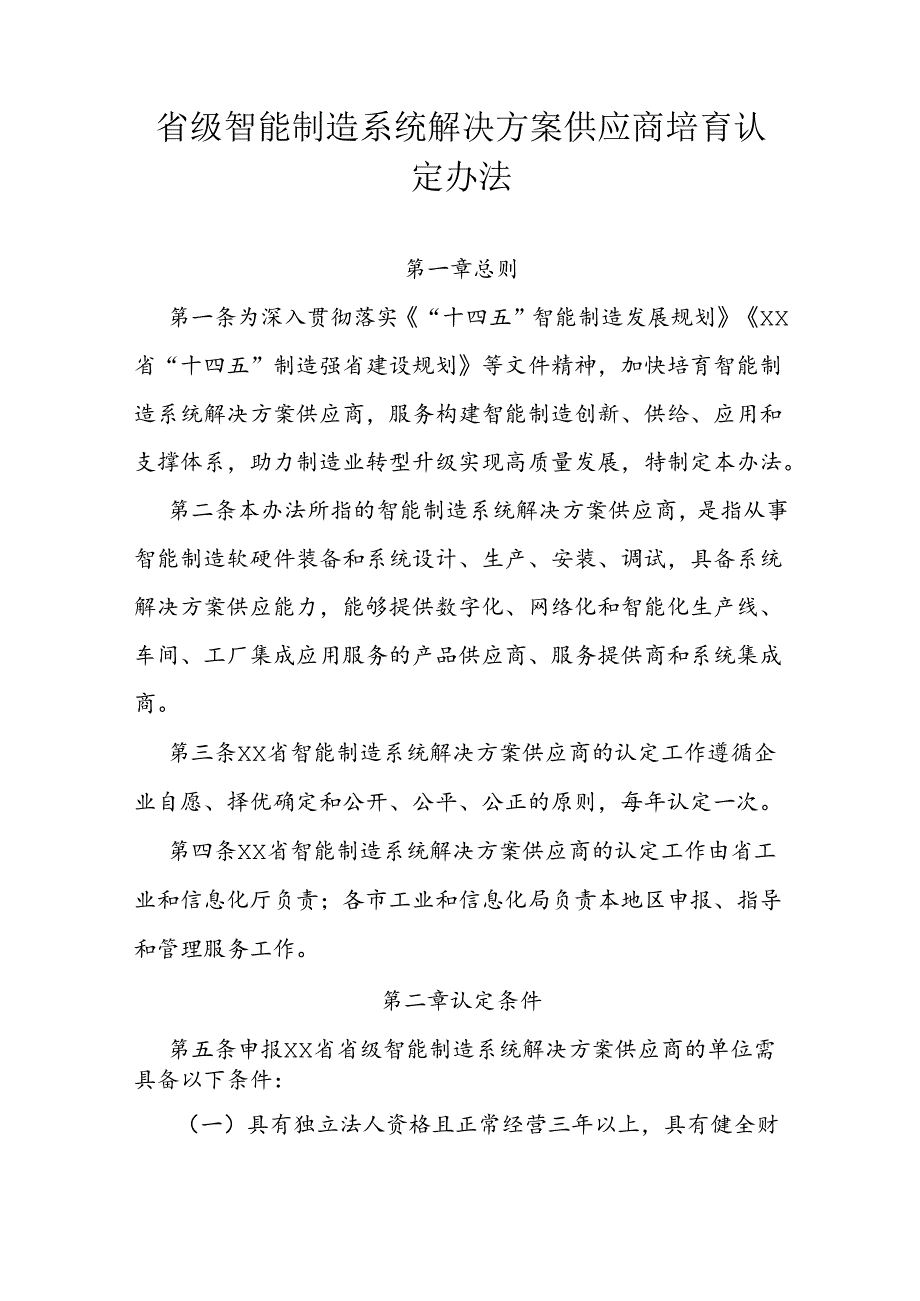 省级智能制造系统解决方案供应商培育认
定办法
第一章总则
第一条为深入贯彻落实《“十四五”智能制造发展规划》《XX
省“十四五”制造强省建设规划》等文件精神，加快培育智能制
造系统解决方案供应商，服务构建智能制造创新、供给、应用和
支撑体系，助力制造业转型升级实现高质量发展，特制定本办法。
第二条本办法所指的智能制造系统解决方案供应商，是指从事
智能制造软硬件装备和系统设计、生产、安装、调试，具备系统
解决方案供应能力，能够提供数字化、网络化和智能化生产线、
车间、工厂集成应用服务的产品供应商、服务提供商和系统集成
商。
第三条XX省智能制造系统解决方案供应商的认定工作遵循企
业自愿、择优确定和公开、公平、公正的原则，每年认定一次。
第四条XX省智能制造系统解决方案供应商的认定工作由省工
业和信息化厅负责；各市工业和信息化局负责本地区申报、指导
和管理服务工作。
第二章认定条件
第五条申报XX省省级智能制造系统解决方案供应商的单位需
具备以下条件：
（一）具有独立法人资格且正常经营三年以上，具有健全财